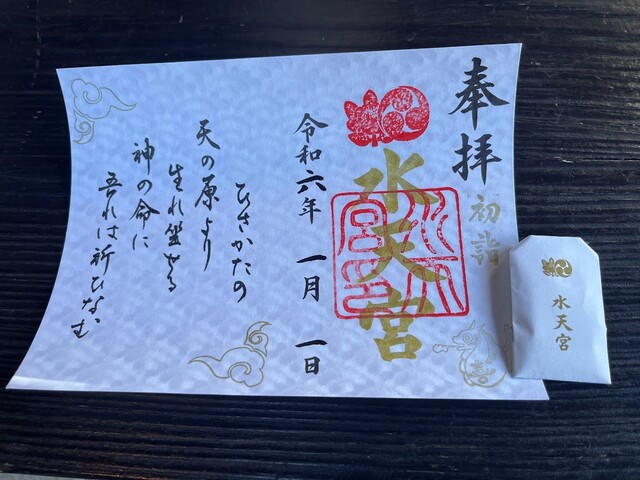 奉拝
初詣
水天宮
水天宮印
令和六年 一月 一日
ひさかたの
天の原より
生れ坐せる
神の命に
吾れは祈ひなむ
水天宮